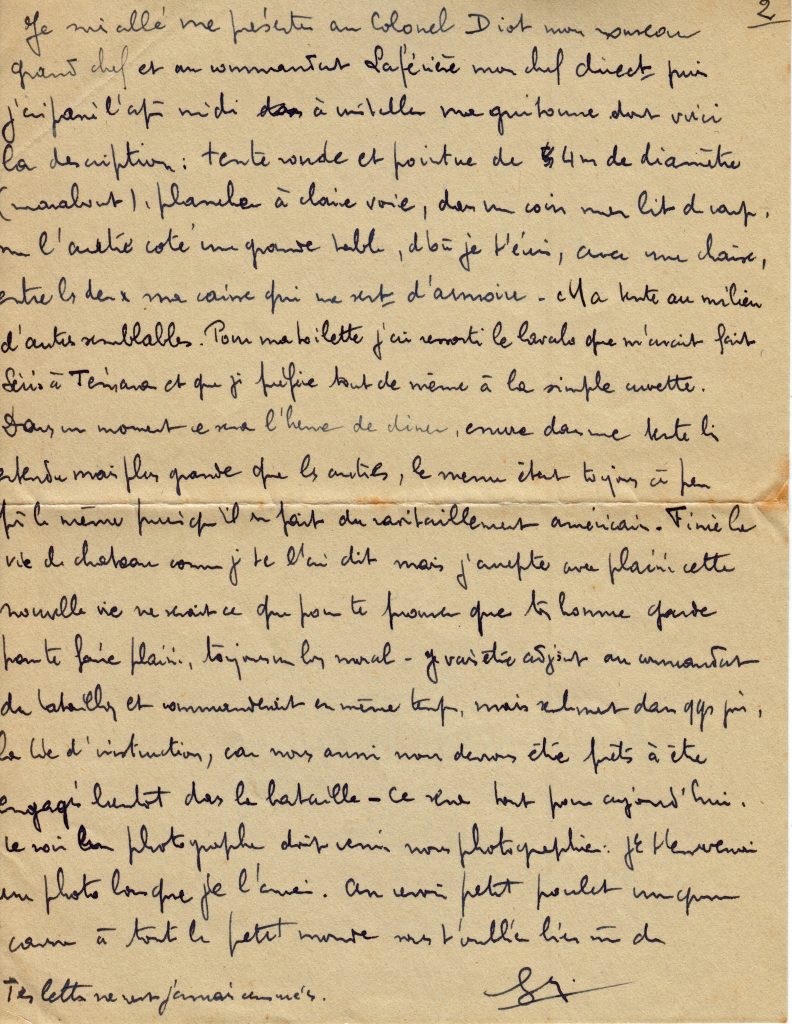 2
Je suis allé me présenter au Colonel Diot mon nouveau
grand chef et au commandant Laférière mon chef direct puis
j'ai passé l'après midi à installer ma guitoune dont voici
la description : tente ronde et pointue de 4m de diamètre
(marabout), plancher à claire voie, dans un coin mon lit de camp,
sur l'autre coté une grande table, d'où je t'écris, avec une chaise,
entre les deux ma caisse qui me sert d'armoire - Ma tente au milieu
d'autres semblables. Pour ma toilette j'ai ressorti le lavabo que m'avait fait
à et que je préfère tout de même à la simple cuvette.
Dans un moment ce sera l'heure de diner, encore dans une tente bien
entendu mais plus grande que les autres, le menu étant toujours à peu
près le même puisqu'il se fait du ravitaillement américain - Finie la
vie de chateau comme je te l'ai dit mais j'accepte avec plaisir cette
nouvelle vie ne serait ce que pour te prouver que ton homme garde
pour te faire plaisir, toujours un bon moral - Je vais être adjoint au commandant
du bataillon et commanderait en même temps, mais seulement dans qqs jours,
la Cie d'instruction, car nous aussi nous devons être prêts à être
engagés bientôt dans la bataille - Ce sera tout pour aujourd'hui.
Ce soir un photographe doit venir nous photographier : je t'enverrai
une photo lorsque je l'aurai. Au revoir petit poulet
à tout le petit monde sans t'oublier bien sûr
Tes lettres ne sont jamais censurées.